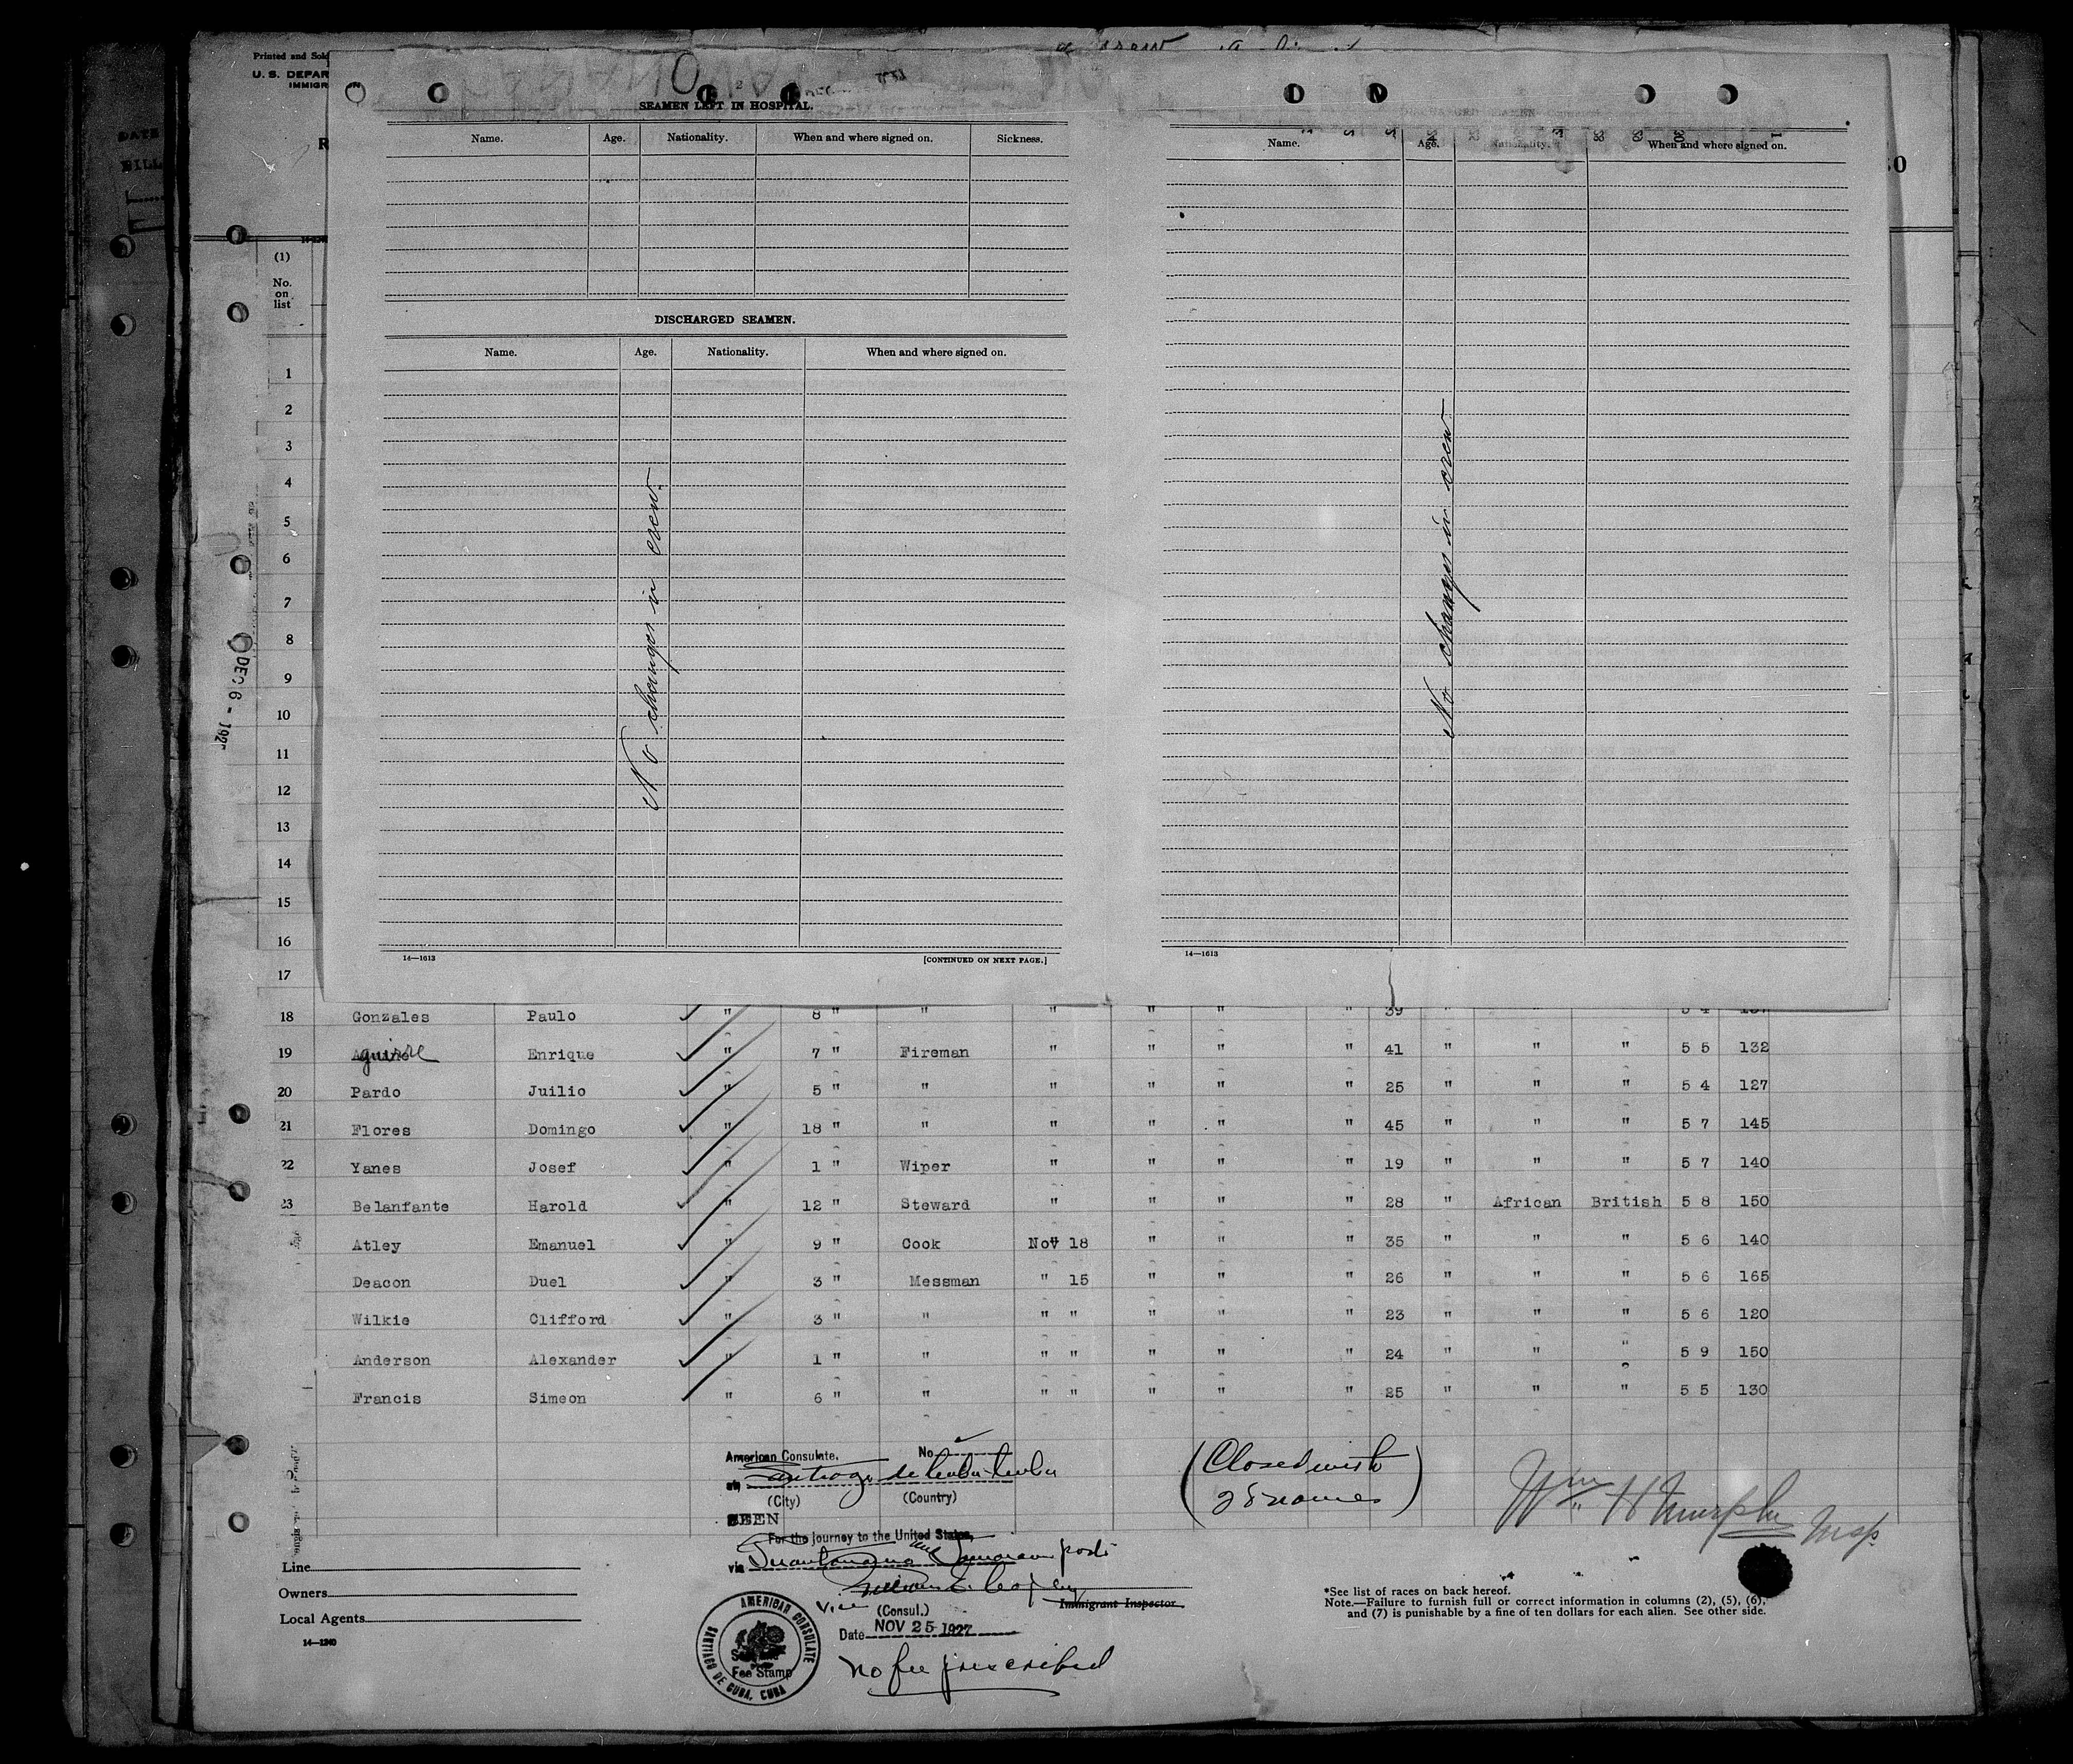 Printed and Sold
U. S. DEPAR
IMMIGR
SEAMEN LEFT IN HOSPITAL.
Name. Age. Nationality. When and where signed on. Sickness.
DISCHARGED SEAMEN.
Name. Age. Nationality. When and where signed on.
No changes in crew.
14—1613 [CONTINUED ON NEXT PAGE.]
Name. Age. Nationality. When and where signed on.
No changes in crew
14—1613
DEC 6 - 192
(1)
No.
on
list
1
2
3
4
5
6
7
8
9
10
11
12
13
14
15
16
17
18 Gonzales Paulo " 8 " " " " " " 39 " " " 5 4
19 Aguirre Enrique " 7 " Fireman " " " " 41 " " " 5 5 132
20 Pardo Juilio " 5 " " " " " " 25 " " " 5 4 127
21 Flores Domingo " 18 " " " " " " 45 " " " 5 7 145
22 Yanes Josef " 1 " Wiper " " " " 19 " " " 5 7 140
23 Belanfante Harold " 12 " Steward " " " " 28 " African British 5 8 150
Atley Emanuel " 9 " Cook Nov 18 " " " 35 " " " 5 6 140
Deacon Duel " 3 " Messman " 15 " " " 26 " " " 5 6 165
Wilkie Clifford " 3 " " " " " " " 23 " " " 5 6 120
Anderson Alexander " 1 " " " " " " " 24 " " " 5 9 150
Francis Simeon " 6 " " " " " " " 25 " " " 5 5 130
American Consulate. No
at Santiago de Cuba Cuba
(City) (Country)
SEEN
For the journey to the United States,
via Guantanamo and Jamaican ports
Vice (Consul.) Immigrant Inspector.
Date NOV 25 1927
no fee prescribed
AMERICAN CONSULATE
SANTIAGO DE CUBA, CUBA
Fee Stamp
(Closed with
28 names)
Wm H Murphy Insp.
Line
Owners
Local Agents
14—1240
*See list of races on back hereof.
Note.—Failure to furnish full or correct information in columns (2), (5), (6),
and (7) is punishable by a fine of ten dollars for each alien. See other side.